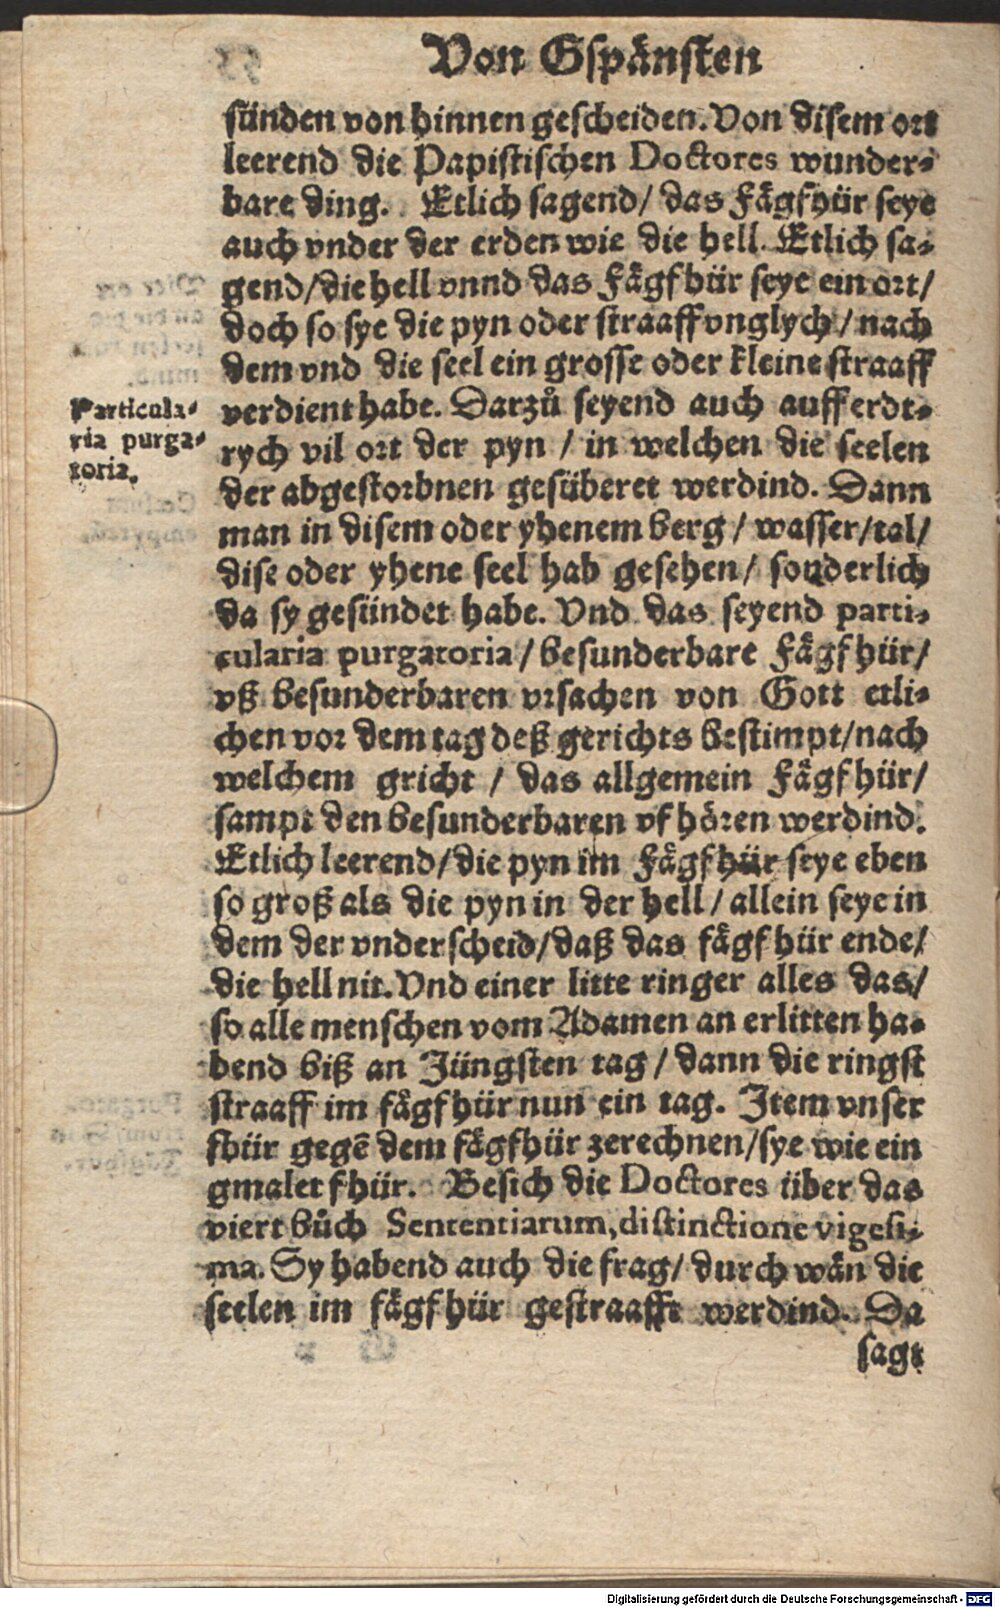 Von Gspånsten
sünden von hinnen gescheiden. Von disem ort
leerend die Papistischen Doctores wunder-
bare ding. Etlich sagend/ das Fågfhür seye
auch vnder der erden wie die hell. Etlich sa-
gend/die hell vnnd das Fågfhür seye ein ort/
doch so sye die pyn oder straaff vnglych/ nach
dem vnd die seel ein grosse oder kleine straaff
verdient habe. Darzů seyend auch auff erdt-
rych vil ort der pyn / in welchen die seelen
der abgestorbnen gesüberet werdind. Dann
man in disem oder yhenem berg/ wasser/tal/
dise oder yhene seel hab gesehen/ sonderlich
da sy gesündet habe. Vnd das seyend parti-
cularia purgatoria/ besunderbare Fågfhür/
vß besunderbaren vrsachen von Gott etli-
chen vor dem tag deß gerichts bestimpt/nach
welchem gricht / das allgemein Fågfhür/
sampt den besunderbaren vfhören werdind.
Etlich leerend/die pyn im Fågfhür seye eben
so groß als die pyn in der hell/ allein seye in
dem der vnderscheid/daß das fågfhür ende/
die hell nit. Vnd einer litte ringer alles das/
so alle menschen vom Adamen an erlitten ha-
bend biß an Jüngsten tag/ dann die ringst
straaff im fågfhür nun ein tag. Item vnser
fhür gegē dem fågfhür zerechnen/sye wie ein
gmalet fhür. Besich die Doctores über das
viert bůch Sententiarum, distinctione vigesi-
ma. Sy habend auch die frag/ durch wån die
seelen im fågfhür gestraafft werdind. Da
sagt
Particula-
ria purga-
toria.
Digitalisierung gefördert durch die Deutsche Forschungsgemeinschaft - DFG